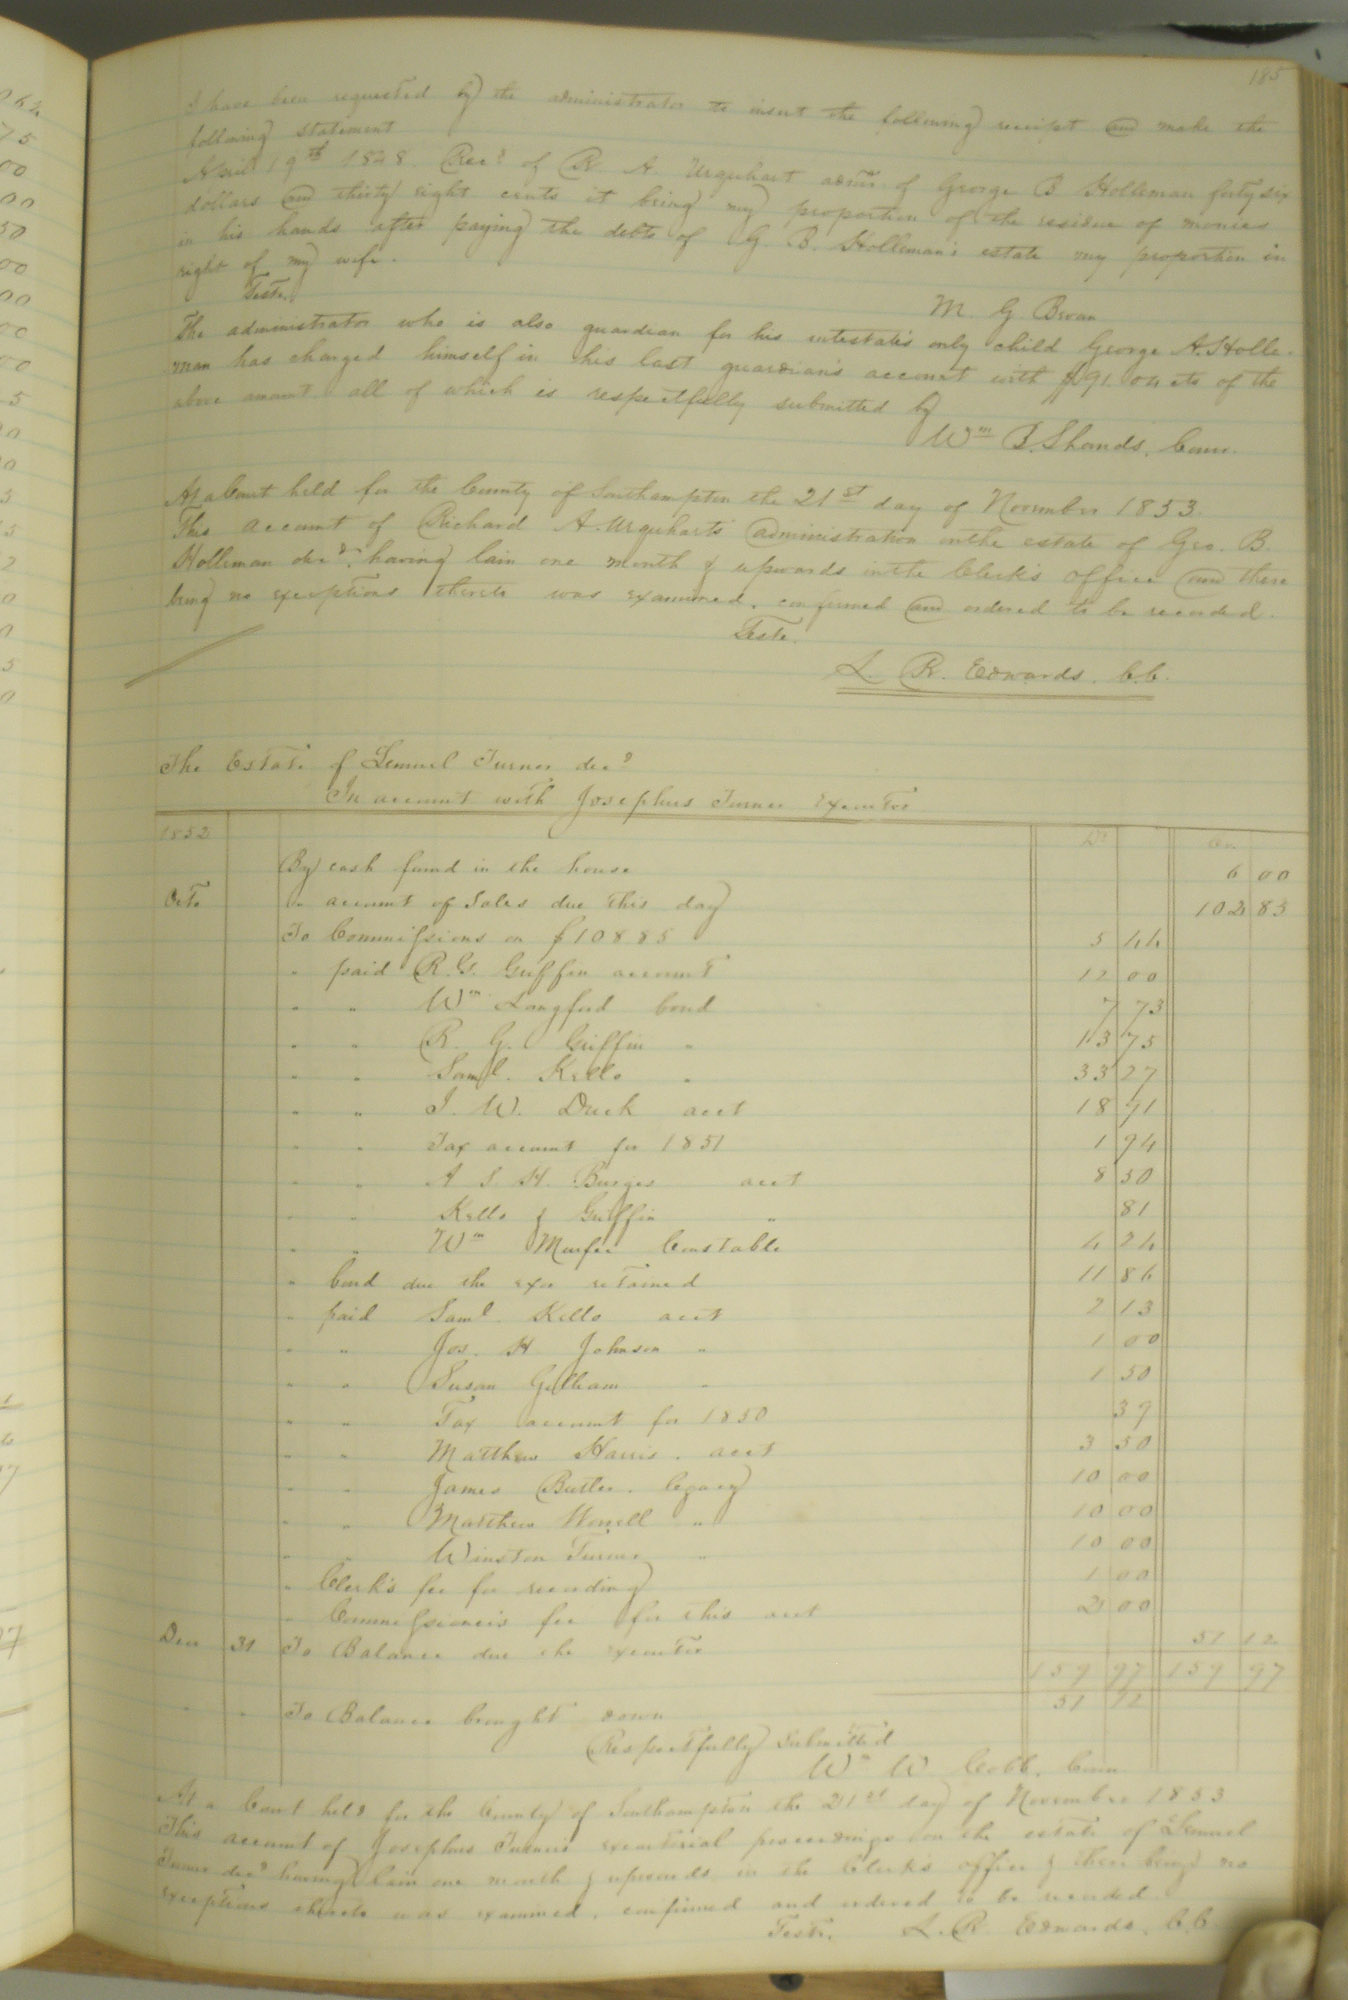 185
I have been requested by the administrator to insert the following receipt and make the
following statement
April 19th 1848. Recd of R. A. Urquhart admr of George B Holleman forty six
dollars and thirty eight cents it being my proportion of the residue of monies
in his hands after paying the debts of G. B. Holleman's estate my proportion in
right of my wife.
Teste. M. G. Bevan
The administrator who is also guardian for his intestate's only child George A. Holle-
man has charged himself in his last guardian's account with $91.04 cts of the
above amount all of which is respectfully submitted by
Wm B. Shands, Comr.
At a Court held for the County of Southampton the 21st day of November 1853.
This account of Richard A. Urquharts administration on the estate of Geo. B.
Holleman decd. having lain one month & upwards in the Clerk's office and there
being no exceptions thereto was examined, confirmed and ordered to be recorded.
Teste.
L. R. Edwards. C.C.
The Estate of Lemuel Turner decd
In account with Josephus Turner Executor
1852 Dr Cr.
By cash found in the house 6 00
Octo " account of Sales due this day 102 85
To Commissions on $108 85 5 44
" paid R. G. Griffin account 12 00
" " Wm Langford bond 7 73
" " R. G. Griffin " 13 75
" " Saml. Kello " 33 27
" " J. W. Duck acct 18 91
" " Tax account for 1851 1 94
" " A S. H. Burges acct 8 50
" " Kello & Griffin " 81
" " Wm Murfee Constable 4 24
" bond due the exor retained 11 86
" paid Saml. Kello acct 2 13
" " Jos. H Johnson " 1 00
" " Susan Gilliam " 1 50
" " Tax account for 1850 39
" " Matthew Harris. acct 3 50
" " James Butler. legacy 10 00
" " Matthew Worrell " 10 00
" " Winston Turner " 10 00
" Clerk's fee for recording 1 00
" Commissioner's fee for this acct 2 00
Decr 31 To Balance due the executor 51 12
159 97 159 97
" " To Balance brought down 51 12
Respectfully Submitted
Wm W. Cobb, Comr
At a Court held for the County of Southampton the 21st day of November 1853
This account of Josephus Turners executorial proceedings on the estate of Lemuel
Turner decd having lain one month & upwards in the Clerk's office & there being no
exceptions thereto was examined, confirmed and ordered to be recorded.
Teste. L. R. Edwards, C.C.